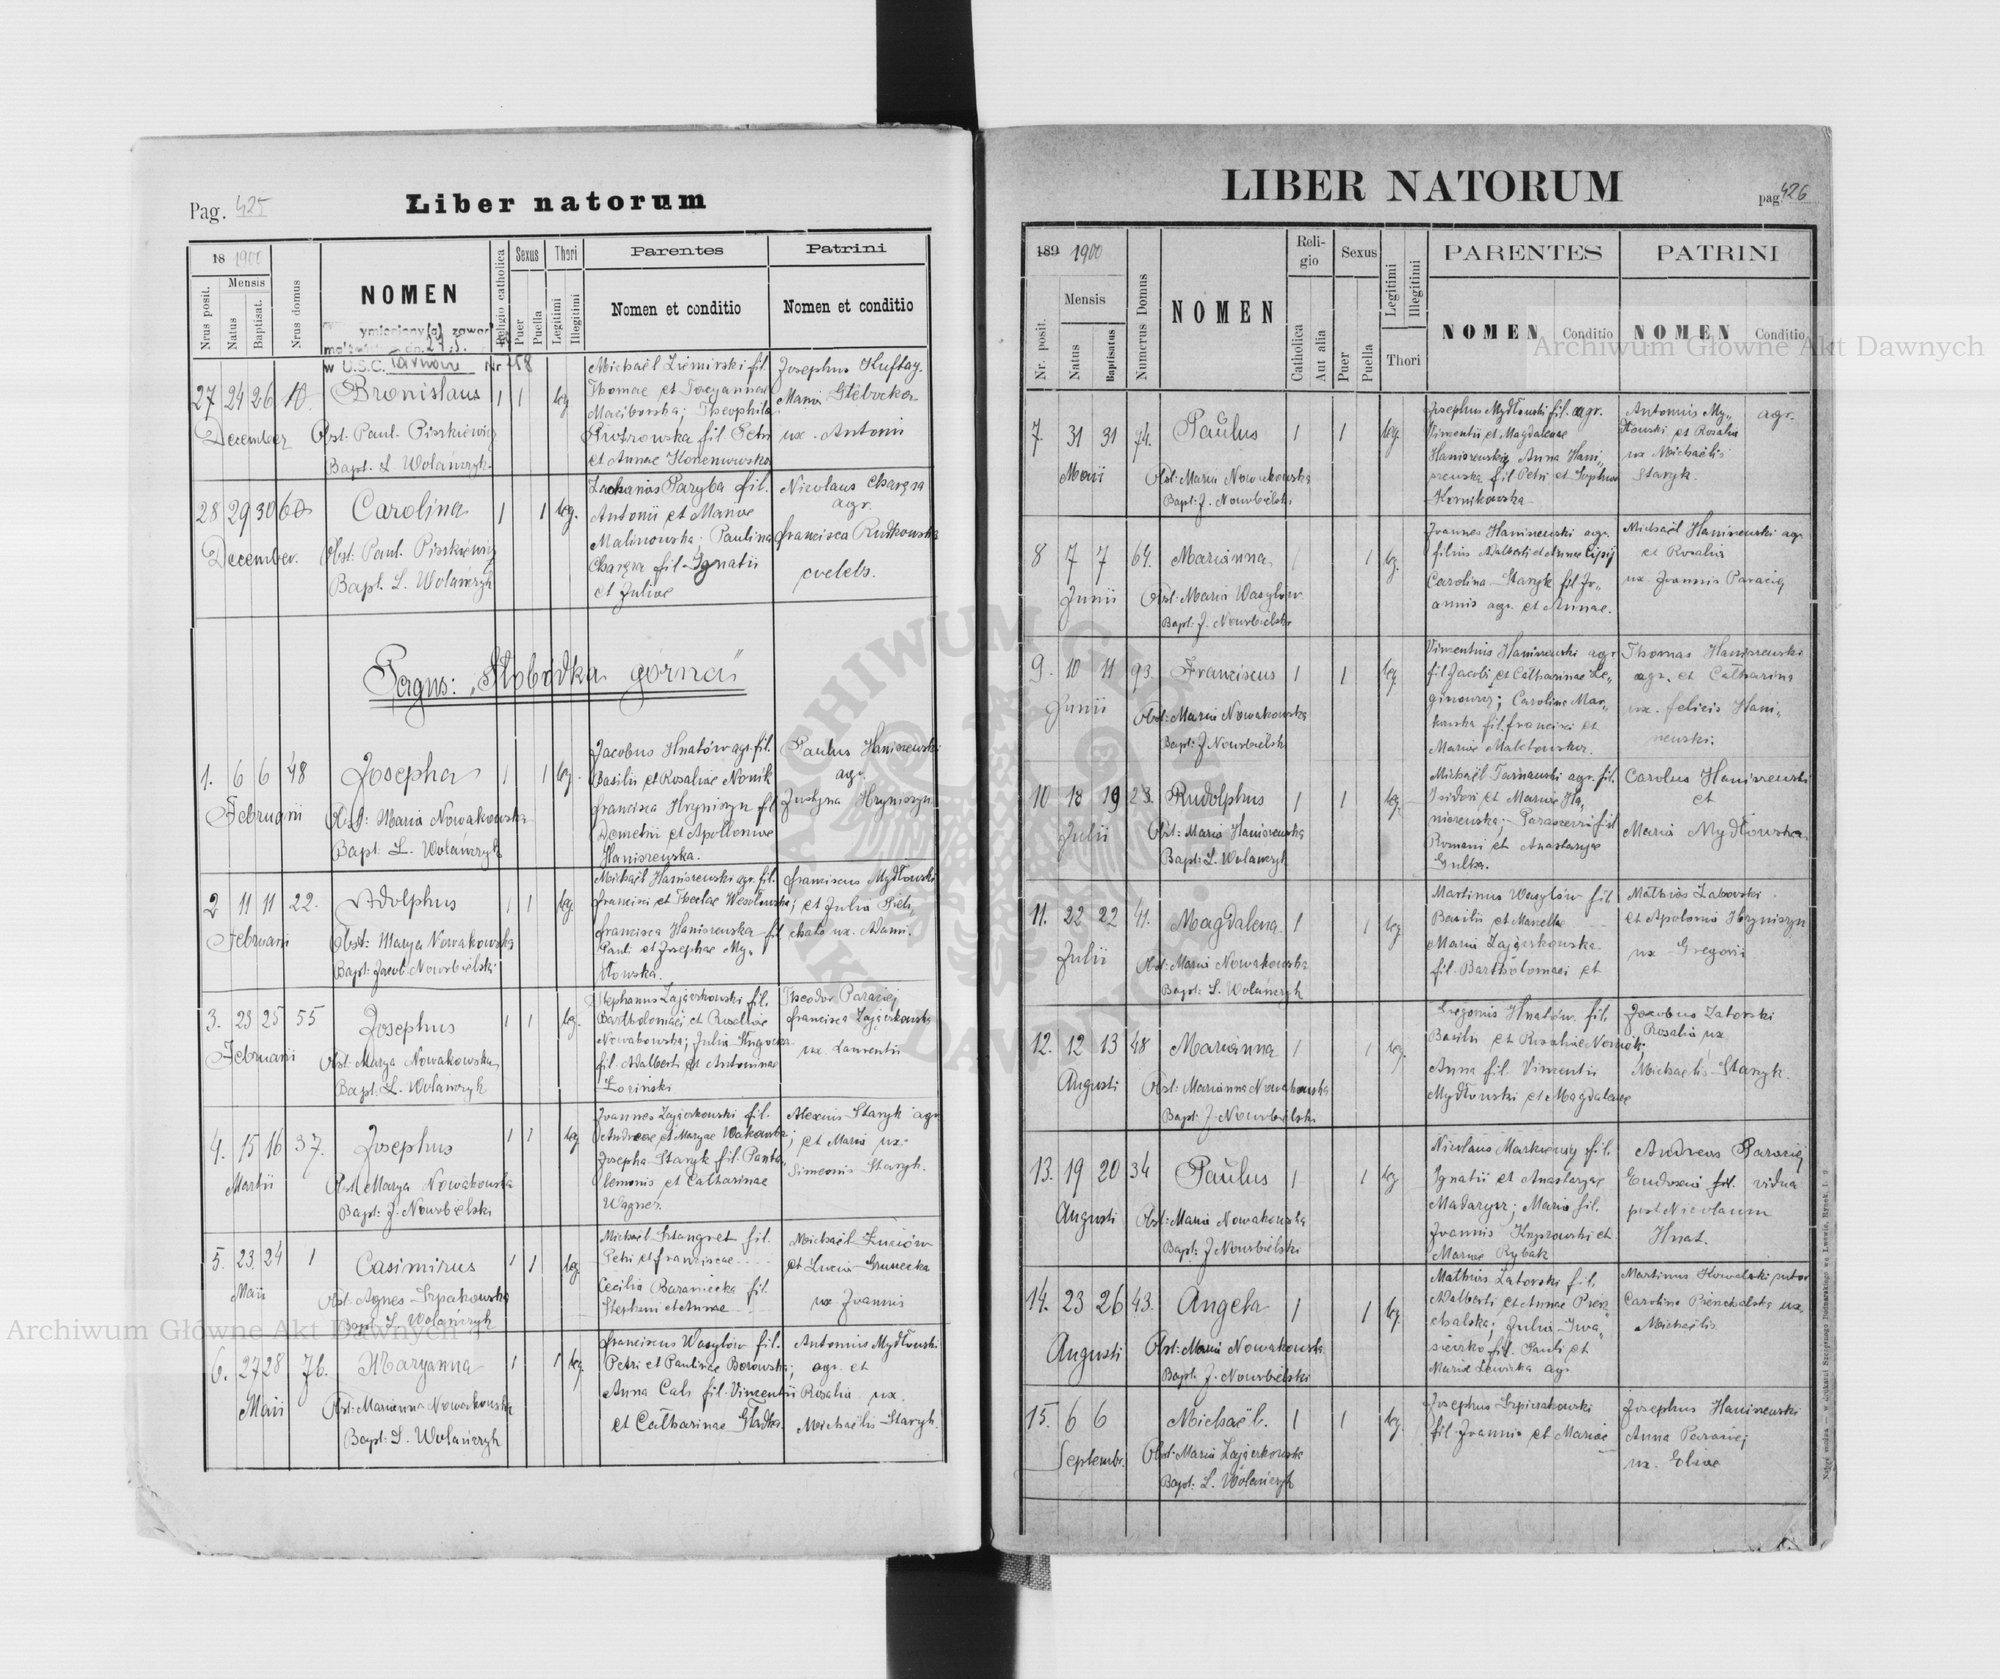 Pag. 425
Liber natorum
18 1900
Mensis
Nrus posit.
Natus
Baptisat.
Nrus domus
NOMEN
Religio catholica
Sexus
Puer
Puella
Thori
Legitimi
Illegitimi
Parentes
Nomen et conditio
Patrini
Nomen et conditio
w U.S.C. Tarnow Nr 158
27 24 26 10. Bronislaus 1 1 leg
December
Obst. Paul. Piszkiewicz
Bapt. L. Wolańczyk
Michaël Ziemirski fil.
Thomae et
Maciborska; Theophila
Piotrowska fil. Petri
et Annae
Josephus
Maria Glebocka
ux. Antonii
28 29 30 60 Carolina 1 1 leg.
December.
Obst. Paul. Piszkiewicz
Bapt. L. Wolańczyk
Zacharias Paryba fil.
Antonii et Mariae
Malinowska. Paulina
Charęza fil. Ignatii
et Juliae
Nicolaus Charęza
agr.
Francisca Rutkowska
coelebs.
Pagus: "Słobódka górna"
1. 6 6 48 Josepha 1 1 leg.
Februarii
Obst: Maria Nowakowska
Bapt: L. Wolańczyk
Jacobus Hnatów agr. fil.
Basilii et Rosaliae Nowik
Francisca Hryniszyn fil
Demetrii et Apolloniae
Haniszewska.
Paulus Haniszewski
agr.
Justyna Hryniszyn
2 11 11 22. Adolphus 1 1 leg
Februarii
Obst: Marya Nowakowska
Bapt: Jacob Nowobielski
Michaël Haniszewski agr. fil.
Francisci et Theclae Wesołowska;
Francisca Haniszewska fil
Pauli et Josephae My„
dłowska.
Franciscus Mydłowski
et Julia
ux. Adami.
3. 23 25 55 Josephus 1 1 leg.
Februarii
Obst. Marya Nowakowska
Bapt: L. Wolańczyk
Stephanus Zajączkowski fil.
Bartholomaei et Rosaliae
Nowakowska; Julia
fil. Adalberti et Antoninae
Łoziński
Theodor Paraciej
Francisca Zajączkowska
ux. Laurentii
4. 15 16 37. Josephus 1 1 leg
Martii
Obst. Marya Nowakowska
Bapt: J. Nowobielski
Joannes Zajączkowski fil.
Andreae et Maryae Wakowska;
Josepha Staryk fil. Panta„
lemonis et Catharinae
Wagner.
Alexius Staryk agr
et Maria ux.
Simeonis Staryk.
5. 23. 24 1 Casimirus 1 1 leg.
Maii
Obst. Agnes Szpakowska
Bapt. L. Wolańczyk
Michaël Sztangret fil.
Petri et Franciscae
Cecilia Baraniecka fil.
Stephani et Annae
Michaël
et Lucia Grunecka
ux. Joannis
6. 27 28 76. Maryanna 1 1 leg.
Maii
Obst: Marianna Nowakowska
Bapt: L. Wolańczyk
Franciscus Wasylów fil.
Petri et Paulinae Borowska;
Anna Cals fil. Vincentii
et Catharinae Gładka.
Antonius Mydłowski
agr. et
Rosalia ux.
Michaëlis Staryk.
LIBER NATORUM
pag 426
189 1900
Mensis
Nr. posit.
Natus
Baptisatus
Numerus Domus
NOMEN
Religio
Catholica
Aut alia
Sexus
Puer
Puella
Legitimi
Illegitimi
Thori
PARENTES
NOMEN Conditio
PATRINI
NOMEN Conditio
7. 31 31 74. Paulus 1 1 leg.
Maii
Obst: Maria Nowakowska
Bapt: J. Nowobielski
Josephus Mydłowski fil. agr.
Vincentii et Magdalenae
Haniszewska; Anna Hani„
szewska fil Petri et Sophiae
Kornikowska
Antonius My„
dłowski et Rosalia
ux Michaëlis
Staryk.
agr.
8 7 7 64. Marianna 1 1 leg.
Junii
Obst: Maria Wasylów
Bapt: J. Nowobielski
Joannes Haniszewski agr.
filius Adalberti et Annae
Carolina Staryk fil. Jo„
annis agr. et Annae.
Michaël Haniszewski agr
et Rosalia
ux. Joannis Paraciej
9. 10 11 93. Franciscus 1 1 leg
Junii
Obst: Maria Nowakowska
Bapt: J Nowobielski
Vincentius Haniszewski agr
fil Jacobi et Catharinae Le„
ginowicz; Carolina Mar„
kowska fil. Francisci et
Mariae Malchowska.
Thomas Haniszewski
agr. et Catharina
ux. Felicis Hani„
szewski.
10 18 19 23. Rudolphus 1 1 leg.
Julii
Obst: Maria Haniszewska
Bapt: L. Wolańczyk
Michaël Tarnawski agr. fil.
Isidori et Mariae Ha„
niszewska; fil
Romani et Anastasyae
Gulka.
Carolus Haniszewski
et
Maria Mydłowska
11. 22 22 41. Magdalena 1 1 leg
Julii
Obst: Maria Nowakowska
Bapt: L. Wolańczyk
Martinus Wasylów fil
Basilii et Marcella
Maria Zajączkowska
fil. Bartholomaei et
Mathias Zaborski
et Apolonia Hryniszyn
ux Gregorii
12. 12 13 48 Marianna 1 1 leg.
Augusti
Obst: Marianna Nowakowska
Bapt: J. Nowobielski
Gregorius Hnatów fil.
Basilii et Rosaliae Nowik;
Anna fil. Vincentii
Mydłowski et Magdalenae
Jacobus Zatorski
Rosalia ux
Michaelis Staryk.
13. 19 20 34 Paulus 1 1 leg
Augusti
Obst: Maria Nowakowska
Bapt: J Nowobielski
Nicolaus Markiewicz fil.
Ignatii et Anastasyae
Madarysz; Maria fil.
Joannis et
Mariae Rybak
Andreas Paraciej
Eudoxia vidua
post Nicolaum
Hnat.
14. 23 26 43. Angela 1 1 leg.
Augusti
Obst: Maria Nowakowska
Bapt: J. Nowobielski
Mathias Zatorski fil.
Adalberti et Annae Pien„
chalska; Julia Iwa„
siczko fil. Pauli et
Mariae Lewicka agr.
Martinus Kowalski sutor
Carolina Pienchalska ux.
Michaëlis
15. 6 6 Michaël. 1 1 leg.
Septembr.
Obst: Maria Zajączkowska
Bapt: L. Wolańczyk
Josephus
fil. Joannis et Mariae
Josephus Haniszewski
Anna Paraciej
ux. Eliae
Archiwum Główne Akt Dawnych
Archiwum Główne Akt Dawnych
ARCHIWUM GŁÓWNE AKT DAWNYCH